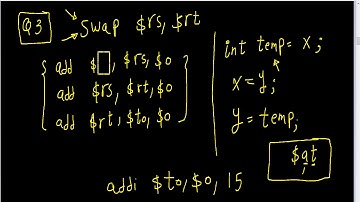 Q3
Swap $rs, $rt
add $ , $rs, $0
add $rs, $rt, $0
add $rt, $t0, $0
int temp = x ;
x = y ;
y = temp;
$at
addi $t0, $0, 15